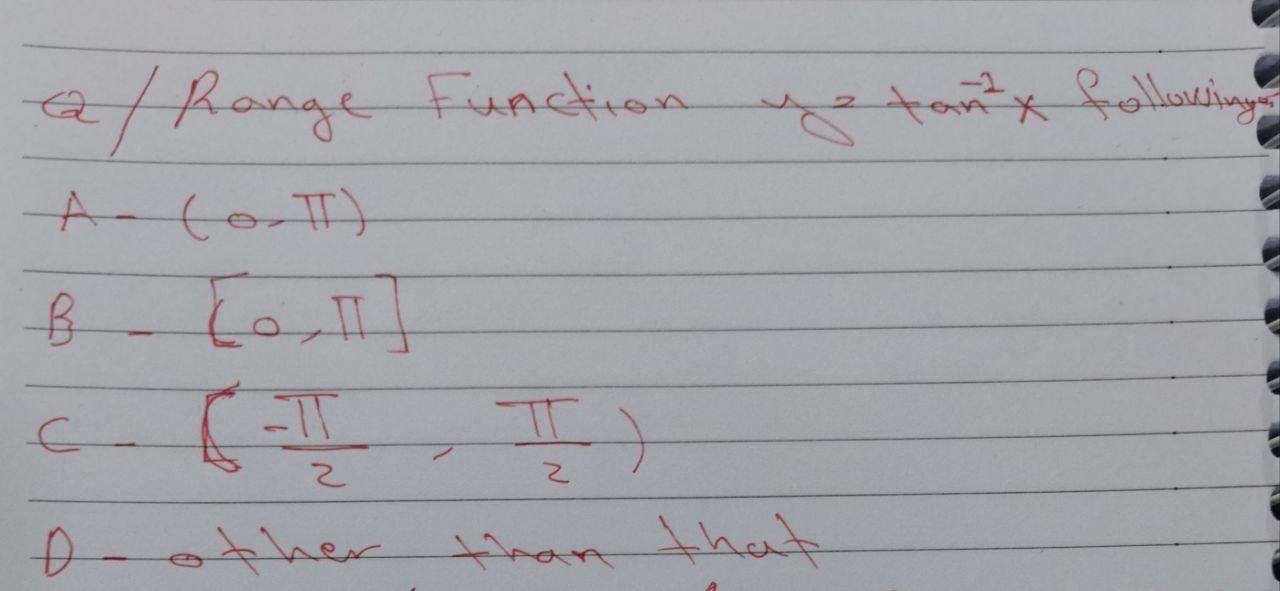 Q/ Range Function y = tan⁻¹x following
A - (0, π)
B - [0, π]
C - (-π/2, π/2)
D - other than that